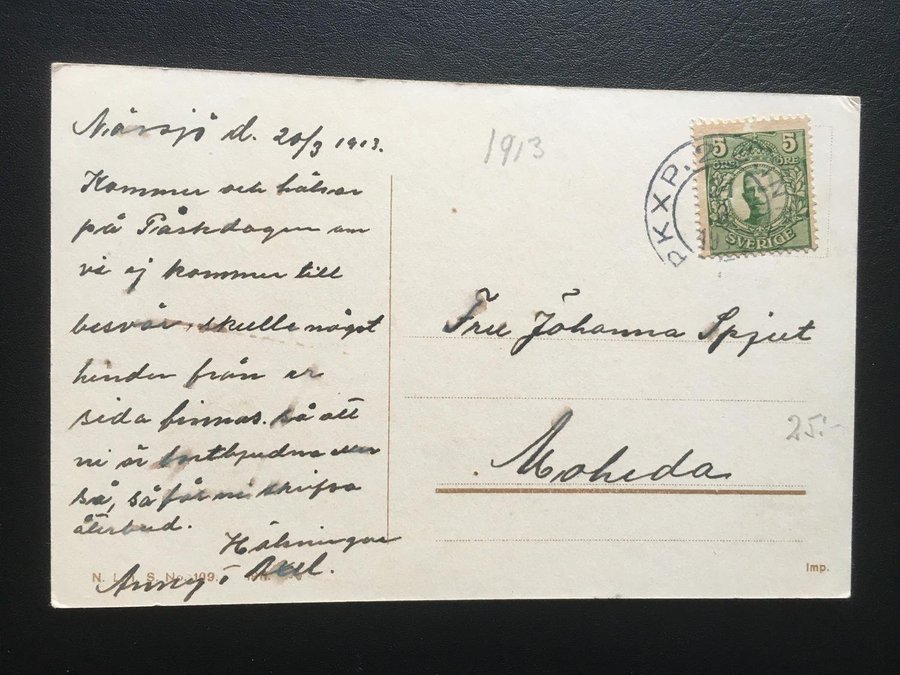 Nässjö d. 20/3 1913.
Kommer och hälsar
på Påskdagen om
vi ej kommer till
besvär, skulle något
hinder från er
sida finnas. så att
ni är bortbjudna eller
så, så får ni skrifva
återbud.
Hälsningar
Anny o Axel.
1913
PKXP.
5 5
ÖRE ÖRE
SVERIGE
Fru Johanna Spjut
Moheda
25:-
N. L. A. S. No. 109.
Imp.